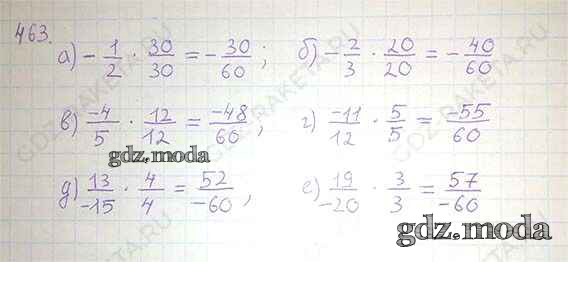 463.
а) -1/2 · 30/30 = -30/60; б) -2/3 · 20/20 = -40/60
в) -4/5 · 12/12 = -48/60; г) -11/12 · 5/5 = -55/60
gdz.moda
д) 13/-15 · 4/4 = 52/-60, е) 19/-20 · 3/3 = 57/-60
gdz.moda
GDZ-RAKETA.RU
GDZ-RAKETA.RU
GDZ-RAKETA.RU